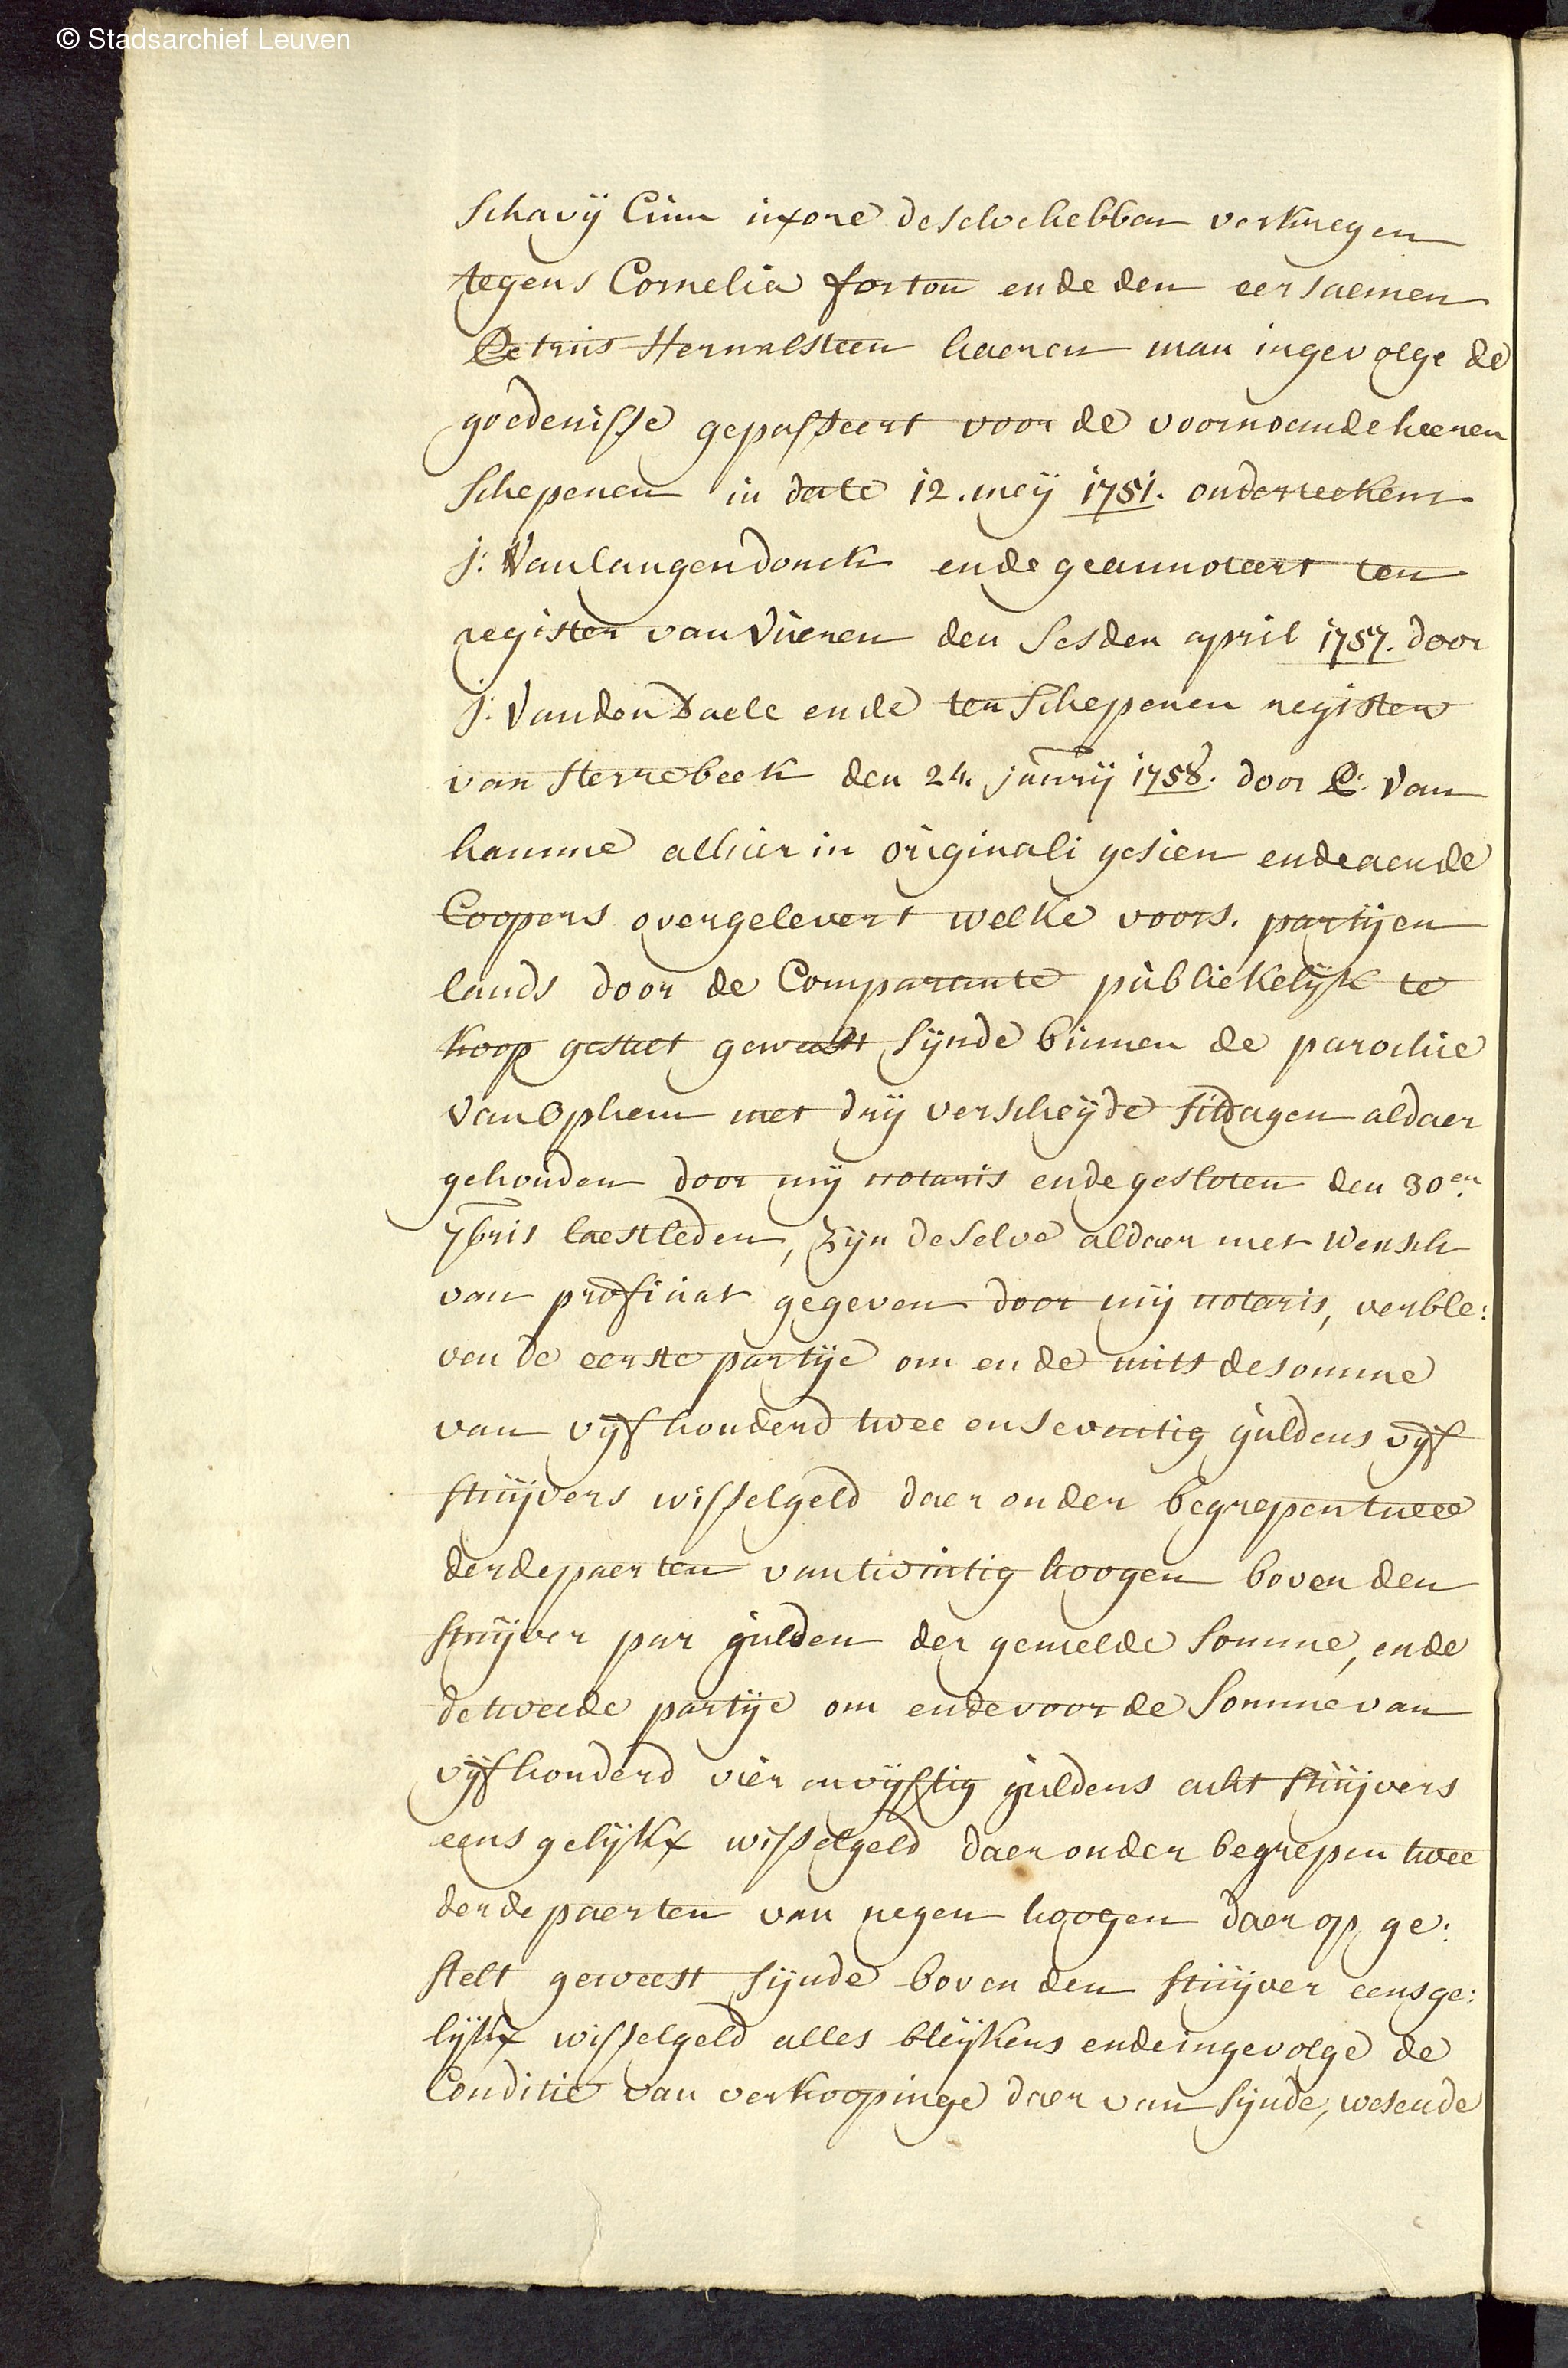 © Stadsarchief Leuven
schavij cum uxore deselve hebben verkregen
tegens Cornelia forton ende den eersaemen
Petrus Hernalsteen haeren man ingevolge de
goedenisse gepasseert voor de voornoemde heeren
schepenen in date 12. meij 1751. onderteekent
j: Vanlangendonck ende geannoteert ten
register van Vueren den sesden april 1757. door
j: Vanden Daele ende ten schepenen register
van sterrebeek den 24. janrij 1758. door P: Van
hamme alhier in originali gesien ende aen de
Coopers overgelevert welke voors. partijen
lands door de Comparante publiekelijk te
koop gestelt geweest sijnde binnen de parochie
van Ophem met drij verscheijde sitdagen aldaer
gehouden door mij notaris ende gesloten den 30en
7bris laestleden, zijn deselve aldaer met wensch
van proficiat gegeven door mij notaris, verble:
ven de eerste partije om ende mits de somme
van vijf honderd twee en seventig guldens vijf
stuijvers wisselgeld daer onder begrepen twee
derde paerten van twintig hoogen boven den
stuijver par gulden der gemelde somme, ende
de tweede partije om ende voor de somme van
vijf honderd vier en vijftig guldens acht stuijvers
eens gelijkx wisselgeld daer onder begrepen twee
derde paerten van negen hoogen daer op ge:
stelt geweest sijnde boven den stuijver eens ge:
lijkx wisselgeld alles bleijkens ende ingevolge de
Conditie van verkoopinge daer van sijnde, wesende